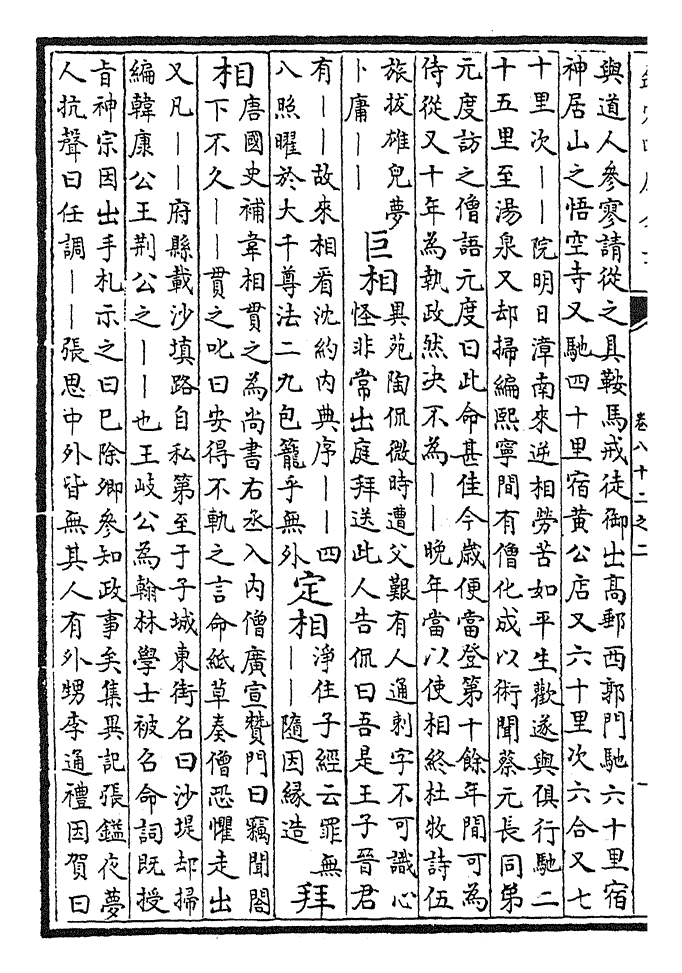 卷八十二之二
與道人參寥請從之具鞍馬戒徒御出高郵西郭門馳六十里宿
神居山之悟空寺又馳四十里宿黃公店又六十里次六合又七
十里次――院明日漳南來逆相勞苦如平生歡遂與俱行馳二
十五里至湯泉又却掃編熙寧間有僧化成以術聞蔡元長同弟
元度訪之僧語元度曰此命甚佳今歲便當登第十餘年間可為
侍從又十年為執政然決不為――晚年當以使相終杜牧詩伍
旅拔雄兒夢
卜庸――
巨相
異苑陶侃微時遭父艱有人通刺字不可識心
怪非常出庭拜送此人告侃曰吾是王子晉君
有――故來相看沈約内典序――四
八照曜於大千尊法二九包籠乎無外
定相
淨住子經云罪無
――隨因緣造
拜
相
唐國史補韋相貫之為尚書右丞入内僧廣宣贊門曰竊聞閤
下不久――貫之叱曰安得不軌之言命紙草奏僧恐懼走出
又凡――府縣載沙填路自私第至于子城東街名曰沙堤却掃
編韓康公王荆公之――也王岐公為翰林學士被召命詞既授
旨神宗因出手札示之曰已除卿參知政事矣集異記張鎰夜夢
人抗聲曰任調――張思中外皆無其人有外甥李通禮因賀曰